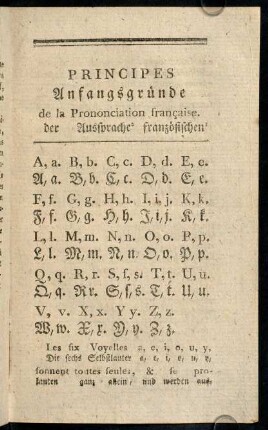 PRINCIPES
Anfangsgründe
de la Prononciation française.
der Aussprache französischen
A, a. B, b. C, c. D, d. E, e.
A, a. B, b. C, c. D, d. E, e.
F, f. G, g. H, h. I, i, j. K, k.
F, f. G, g. H, h. I, i, j. K, k.
L, l. M, m. N, n. O, o. P, p.
L, l. M, m. N, n. O, o. P, p.
Q, q. R, r. S, ſ, s. T, t. U, u.
Q, q. R r. S, ſ, s. T, t. U, u.
V, v. X, x. Y y. Z, z.
W, w. X, x. Y, y. Z, z.
Les ſix Voyelles a, e, i, o, u, y.
Die ſechs Selbſtlauter a, e, i, o, u, y,
ſonnent toutes ſeules, & ſe pro-
lauten ganz allein, und werden aus-